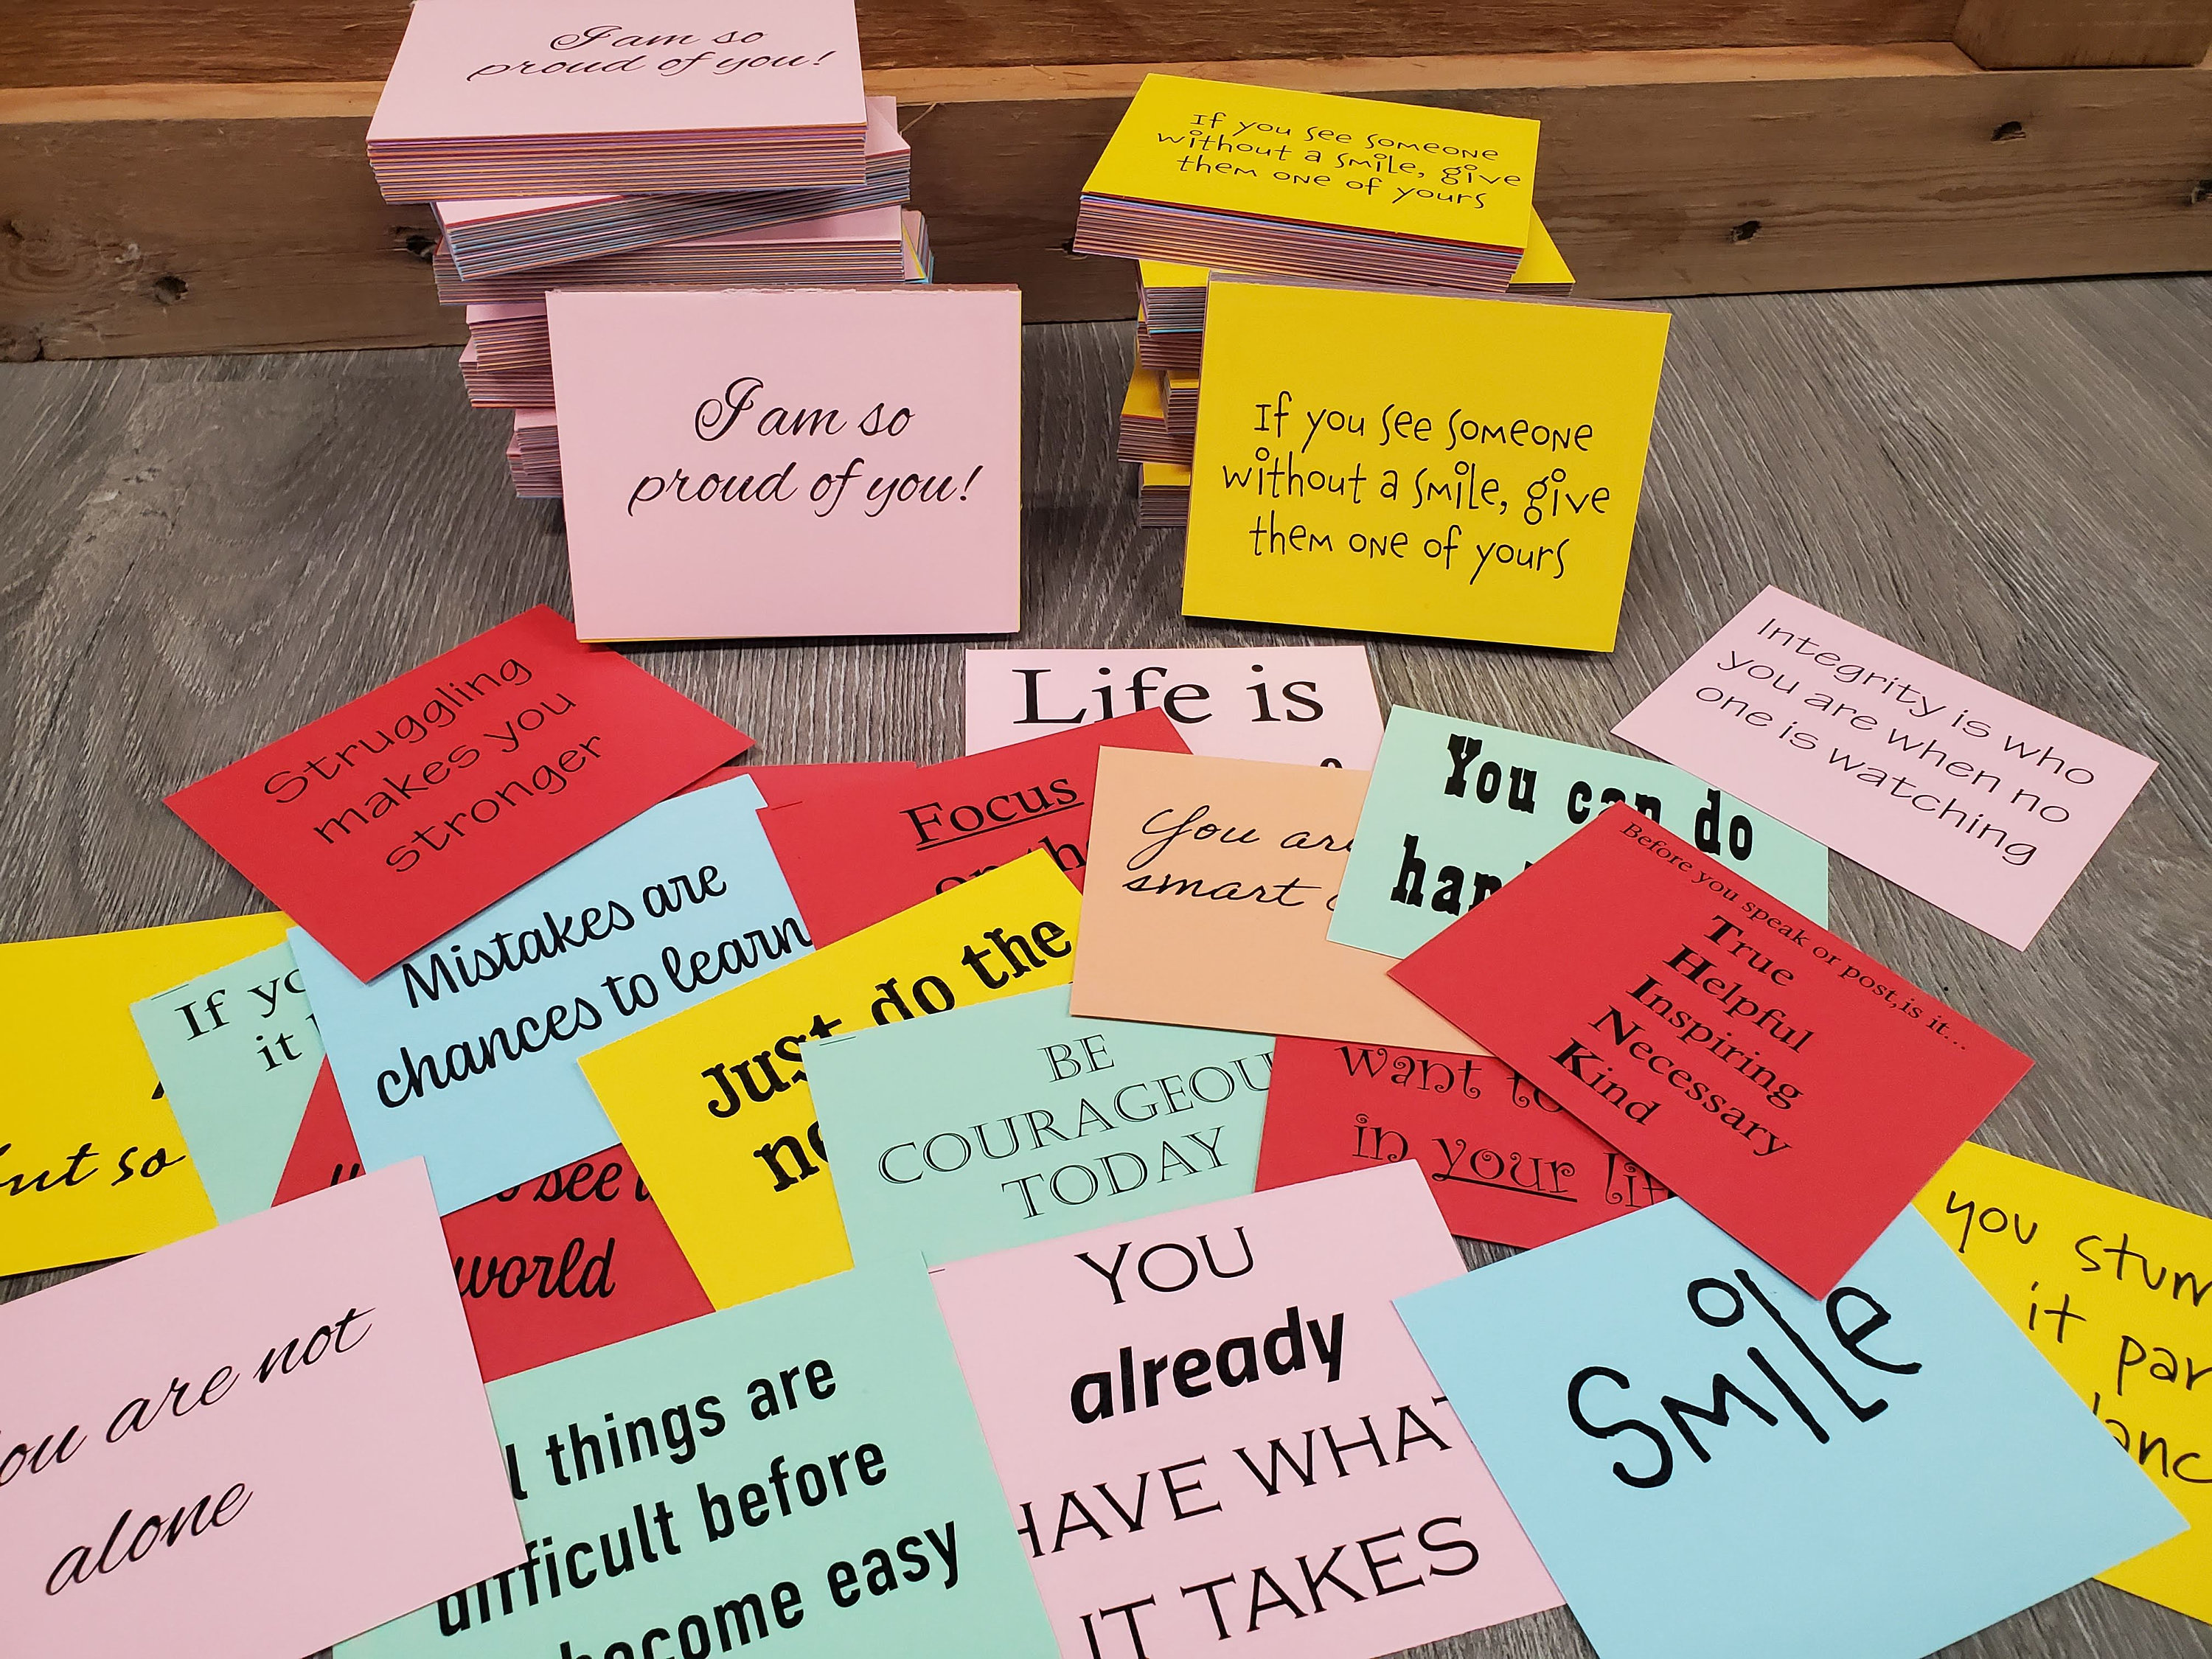 I am so
proud of you!
If you see someone
without a smile, give
them one of yours
I am so
proud of you!
If you see someone
without a smile, give
them one of yours
Struggling
makes you
stronger
Life is
Integrity is who
you are when no
one is watching
Focus
You are
smart
You can do
Before you speak or post,is it...
True
Helpful
Inspiring
Necessary
Kind
Mistakes are
chances to learn
If
it
Just do the
BE
COURAGEOU
TODAY
want to
in your
but so
see
world
you are not
alone
things are
difficult before
become easy
YOU
already
HAVE WHAT
IT TAKES
Smile
you
it